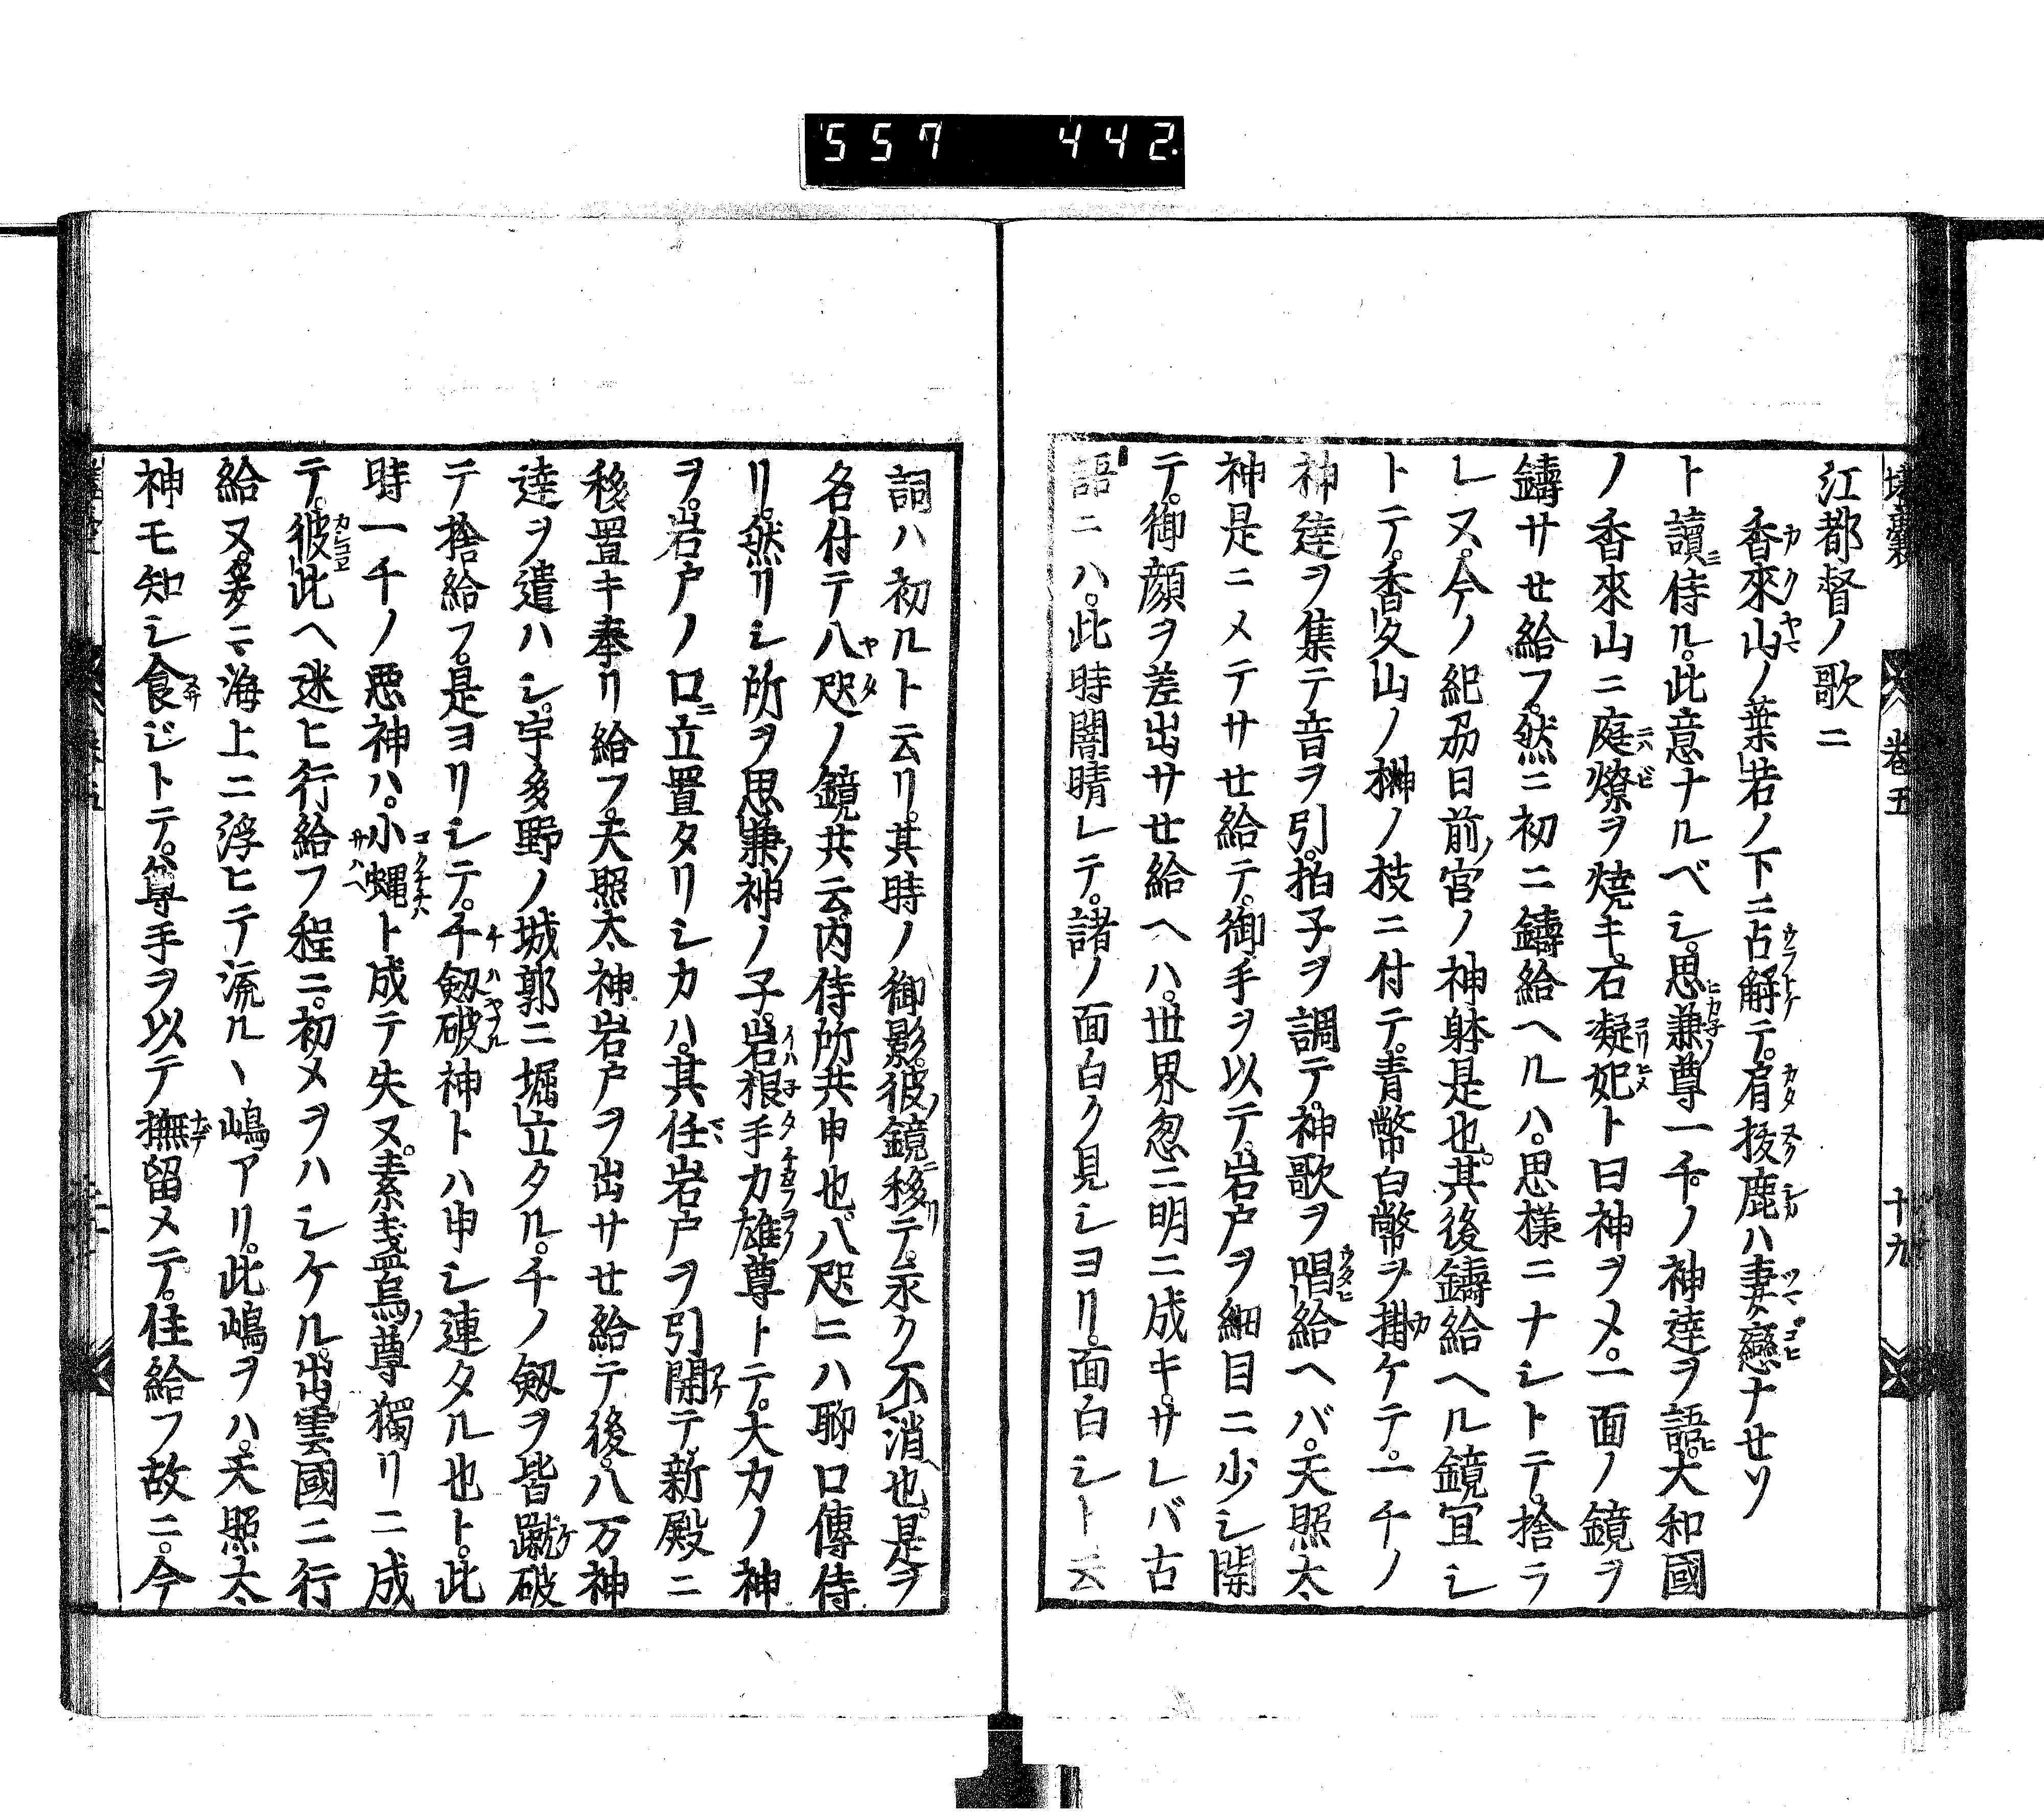 557 442
壒囊 巻五 十九
江都督ノ歌ニ
香來山ノ葉若ノ下ニ占解テ。肩抜鹿ハ妻戀ナせソ
ト讀侍ル。此意ナルベシ。思兼尊一千ノ神達ヲ語ヒ。大和國
ノ香來山ニ庭燎ヲ焼キ。石凝妃ト曰神ヲメ。一面ノ鏡ヲ
鑄サせ給フ。然ニ初ニ鑄給ヘルハ。思様ニナシトテ。捨ラ
レヌ。今ノ紀刕日前宮ノ神躰是也。其後鑄給ヘル鏡冝シ
トテ。香久山ノ榊ノ枝ニ付テ。青幣白幣ヲ掛ケテ。一千ノ
神達ヲ集テ音ヲ引。拍子ヲ調テ。神歌ヲ唱給ヘバ。天照太
神是ニメテサせ給テ。御手ヲ以テ。岩戸ヲ細目ニ少シ開
テ。御顔ヲ差出サせ給ヘハ。世界忽ニ明ニ成キ。サレバ古
語ニハ。此時闇晴レテ。諸ノ面白ク見シヨリ。面白シト云
詞ハ初ルト云リ。其時ノ御影。彼鏡ニ移リテ。永ク不消也。是ヲ
名付テ八咫ノ鏡共云。内侍所共申也。八咫ニハ聊口傳侍
リ。然リシ所ヲ思兼神ノ子。岩根手力雄尊トテ。大力ノ神
ヲ。岩戸ノ口ニ立置タリシカハ。其任岩戸ヲ引開テ。新殿ニ
移置キ奉リ給フ。天照太神岩戸ヲ出サせ給テ後。八万神
達ヲ遣ハシ。宇多野ノ城郭ニ堀立タル。千ノ劔ヲ皆蹴破
テ捨給フ。是ヨリシテ。千劔破神トハ申シ連タル也ト。此
時一千ノ悪神ハ。小蝿ト成テ失ヌ。素盞烏尊獨リニ成
テ。彼此ヘ迷ヒ行給フ程ニ。初メヲハシケル。出雲國ニ行
給ヌ。爰ニ海上ニ浮ヒテ流ルヽ嶋アリ。此嶋ヲハ。天照太
神モ知シ食ジトテ。尊手ヲ以テ撫留メテ。住給フ故ニ。今